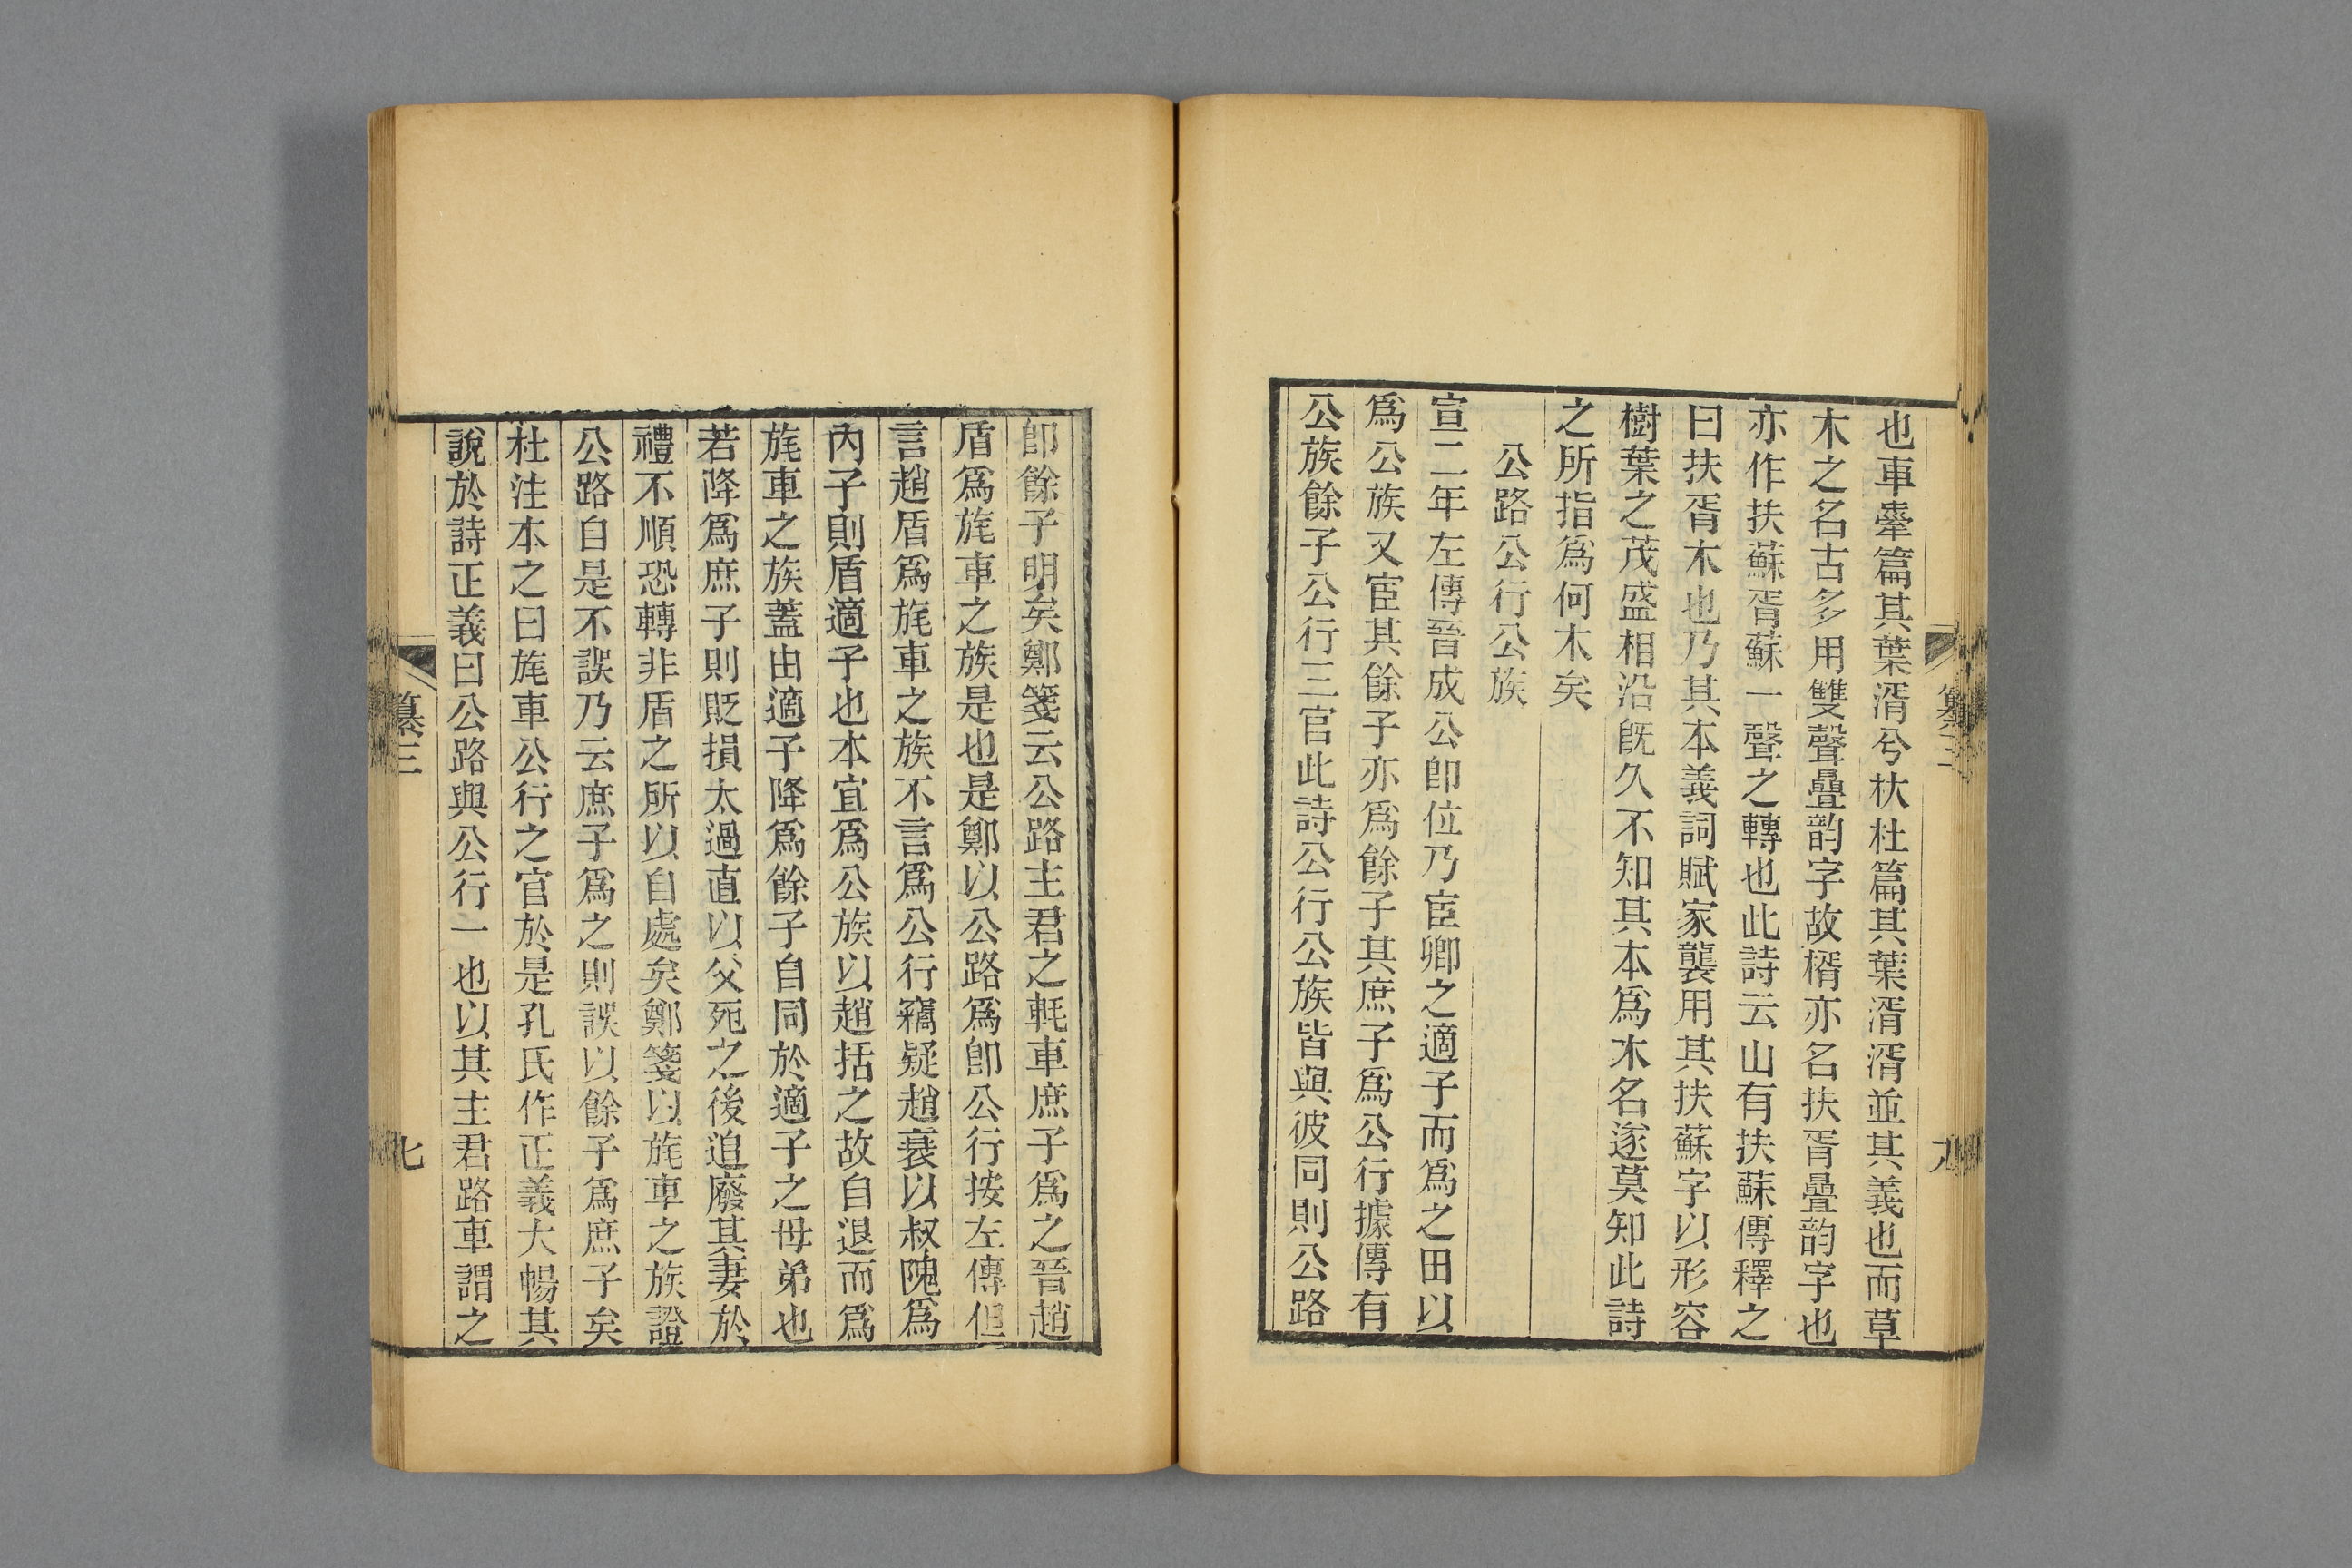 也車舝篇其葉湑兮杕杜篇其葉湑湑並其義也而草
木之名古多用雙聲疊韵字故楈亦名扶胥疊韵字也
亦作扶蘇胥蘇一聲之轉也此詩云山有扶蘇傳釋之
曰扶胥木也乃其本義詞賦家襲用其扶蘇字以形容
樹葉之茂盛相沿既久不知其本爲木名遂莫知此詩
之所指爲何木矣
公路公行公族
宣二年左傳晉成公卽位乃宦卿之適子而爲之田以
爲公族又宦其餘子亦爲餘子其庶子爲公行據傳有
公族餘子公行三官此詩公行公族皆與彼同則公路
卽餘子明矣鄭箋云公路主君之軞車庶子爲之晉趙
盾爲旄車之族是也是鄭以公路爲卽公行按左傳但
言趙盾爲旄車之族不言爲公行竊疑趙衰以叔隗爲
內子則盾適子也本宜爲公族以趙括之故自退而爲
旄車之族蓋由適子降爲餘子自同於適子之母弟也
若降爲庶子則貶損太過直以父死之後追廢其妻於
禮不順恐轉非盾之所以自處矣鄭箋以旄車之族證
公路自是不誤乃云庶子爲之則誤以餘子爲庶子矣
杜注本之曰旄車公行之官於是孔氏作正義大暢其
說於詩正義曰公路與公行一也以其主君路車謂之
纂三
七